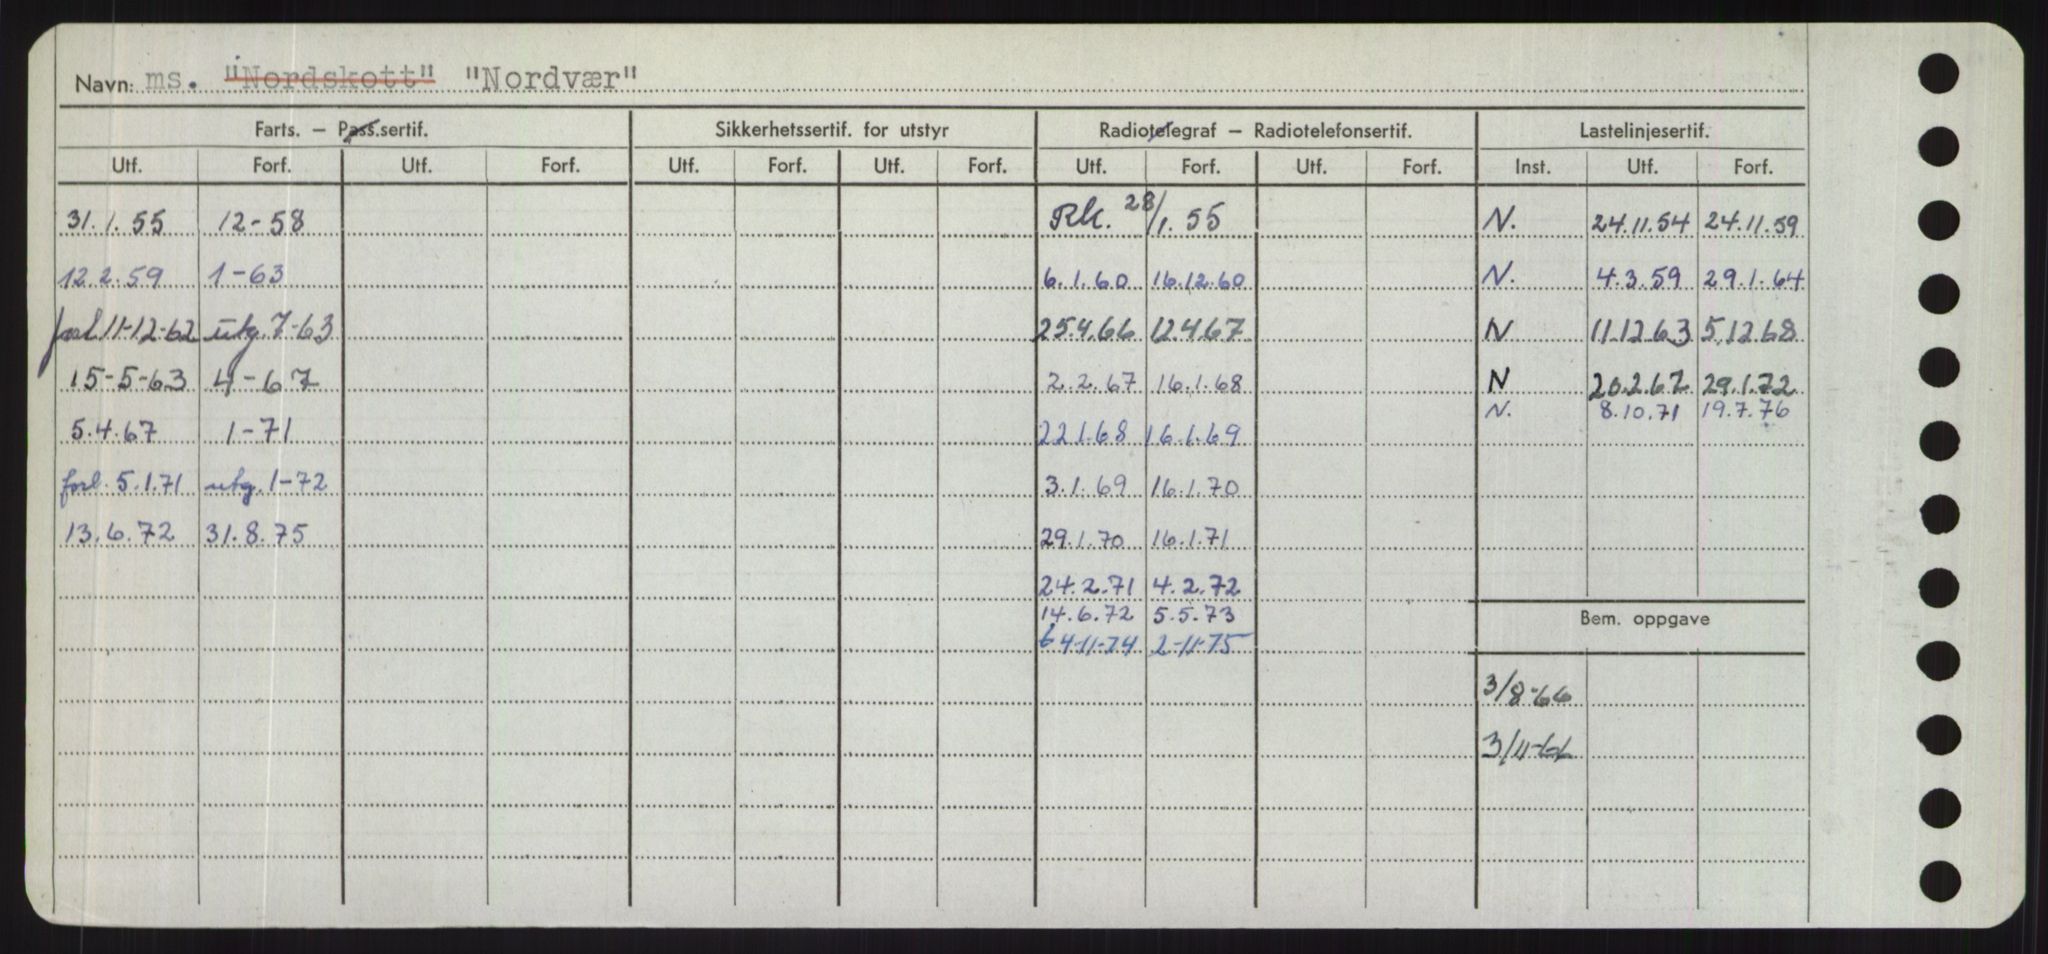 Navn: ms. "Nordskott" "Nordvær"
Farts. – Pass.sertif. Sikkerhetssertif. for utstyr Radiotelegraf – Radiotelefonsertif. Lastelinjesertif.
Utf. Forf. Utf. Forf. Utf. Forf. Utf. Forf. Utf. Forf. Utf. Forf. Inst. Utf. Forf.
31.1.55 12-58 Rk. 28/1.55 N. 24.11.54 24.11.59
12.2.59 1-63 6.1.60 16.12.60 N. 4.3.59 29.1.64
forl 11-12-62 utg. 7-63 25.4.66 12.4.67 N 11.12.63 5.12.68
15-5-63 4-67 2.2.67 16.1.68 N 20.2.67 29.1.72
N. 8.10.71 19.7.76
5.4.67 1-71 22.1.68 16.1.69
forl. 5.1.71 utg. 1-72 3.1.69 16.1.70
13.6.72 31.8.75 29.1.70 16.1.71
24.2.71 4.2.72
14.6.72 5.5.73
Bem. oppgave
4-11-74 2-11-75
3/8-66
3/11-66